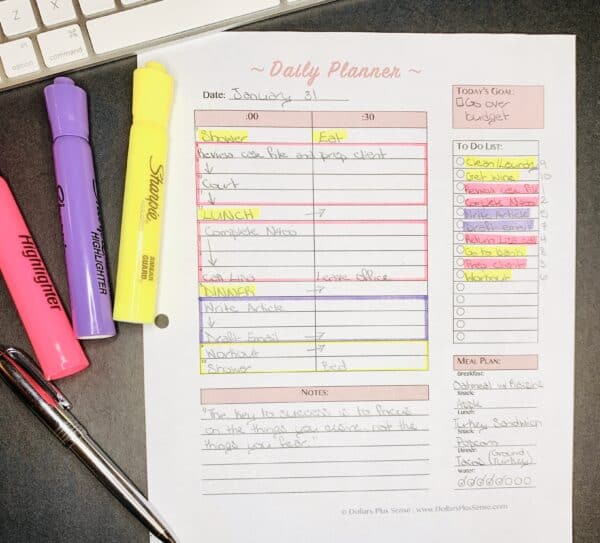 Z
X
option
control
command
~ Daily Planner ~
Date: January 31
:00 :30
Shower Eat
Review case file and prep client
Court
LUNCH
Complete N400
Call Lina Leave office
DINNER
Write Article
Draft Email
Workout
Shower Bed
NOTES:
"The key to success is to focus
on the things you desire, not the
things you fear."
TODAY'S GOAL:
Go over
budget
TO DO LIST:
Clean/Laundry 9
Get wine 10
Review case file
Complete N400 2
Write Article 5
Draft email 7
Return Lisa call 4
Go to bank 8
Prep client
Workout 6
MEAL PLAN:
Breakfast:
Oatmeal w/ Raisins
Snack:
Apple
Lunch:
Turkey Sandwich
Snack:
Popcorn
Dinner:
Tacos (Ground Turkey)
Water:
© Dollars Plus Sense | www.DollarsPlusSense.com
Highlighter
Sharpie
HIGHLIGHTER
Sharpie
SMEAR
GUARD